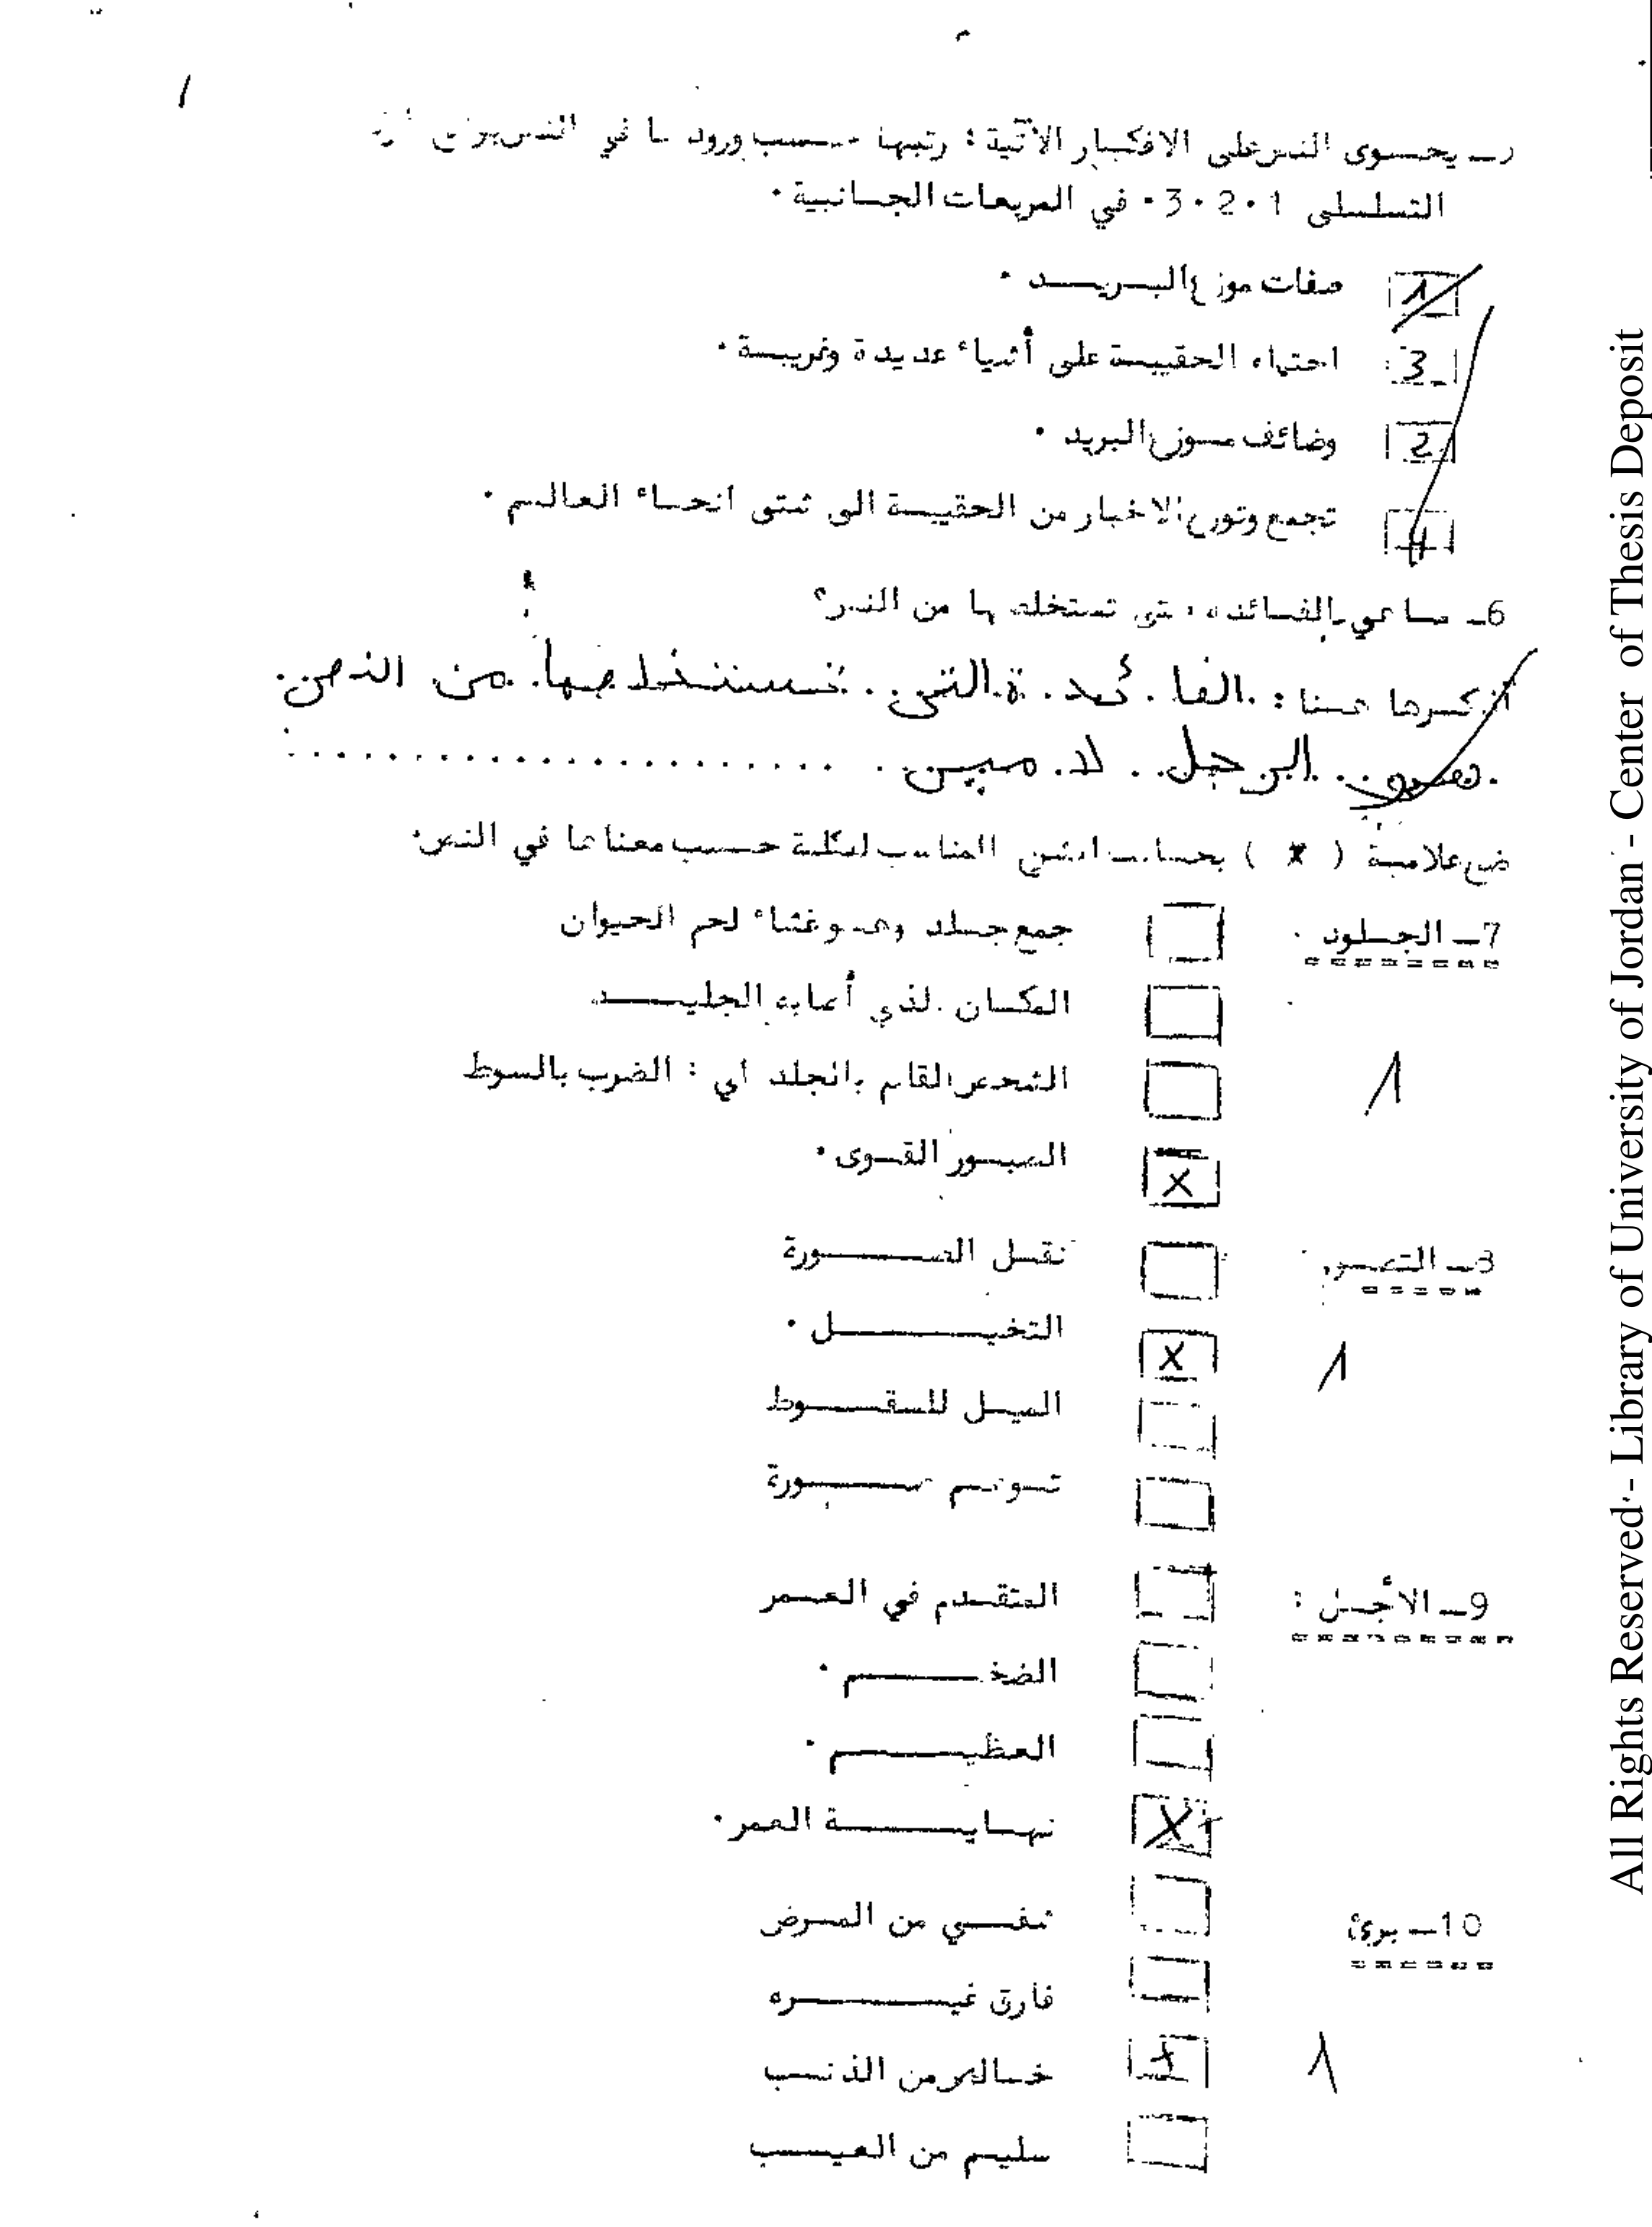 يحسوى النص على الافكسار الآتية : رتبها حسسب ورود ها في النص
التسلسلى 1 ٠ 2 ٠ 3 ٠ في المربعات الجسانبية ٠
1 صفات موزع البسريسسد ٠
3 احتواء الحقيبسة على أشياء عديدة وغريبسة ٠
2 وضائف مسوزع البريد ٠
4 تجمع وتوزع الاخبار من الحقيبسة الى شتى انحساء العالسم ٠
6ــ مسا هي الفسائدة التي تستخلصها من النص؟
أذكسرها هسنا : الفا ئد ة التي تستخلا صها من النص
هو الرجل لا مين
ضع علامسة ( x ) بحسانب المعنى المناسب لكلمة حسسب معناها في النص٠
7ــ الجسلود .
جمع جسلد وهسو غشاء لحم الحيوان
المكسان الذي أصابه الجليسسد
الشخص القائم بالجلد أي : الضرب بالسوط
X الصبسور القسوى ٠
8ــ التصسور
نقسل الصسسورة
X التخيسسل ٠
الميسل للسقسسوط
تسوهسم صسسورة
9ــ الأجسل :
المتقسدم في العسمر
الضخسسم ٠
العظيسسم ٠
X نهسايسسة العمر ٠
10ــ برئ
شفسسي من المسرض
فارق غيسسره
x خسالص من الذنسب
سليسم من العيسسب
1
1
1
1
All Rights Reserved - Library of University of Jordan - Center of Thesis Deposit